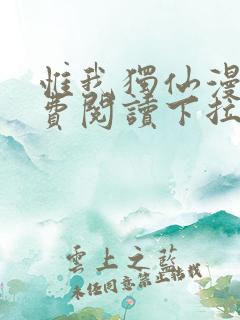 惟我獨仙漫
費閱讀下拉
雲上之藍
未經同意禁止轉載